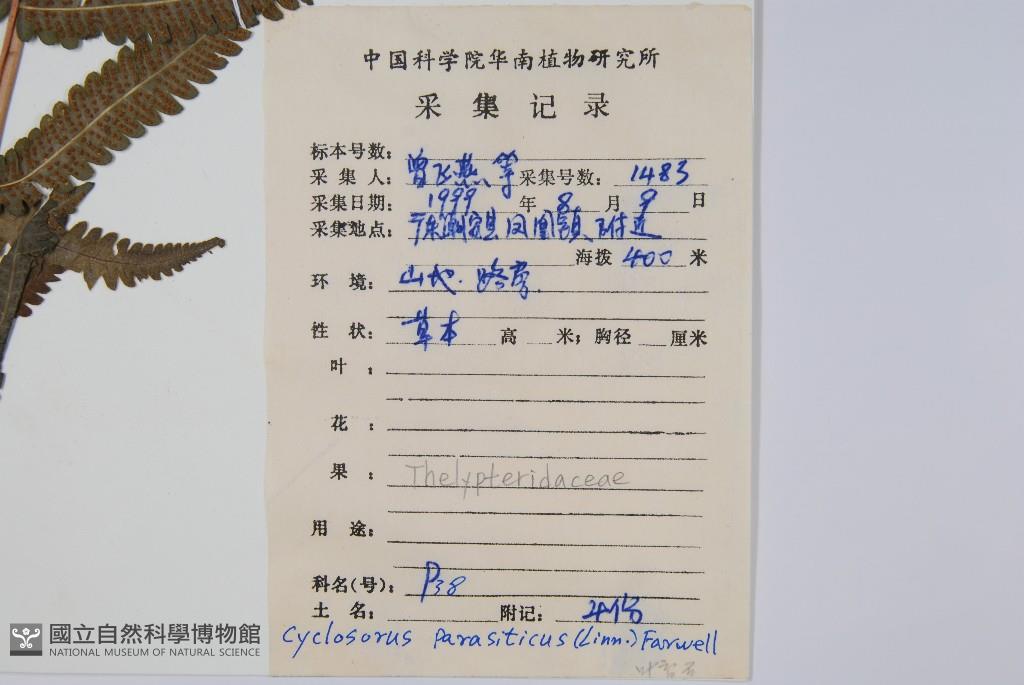 中国科学院华南植物研究所
采集记录
标本号数：
采集人：曾飞燕等 采集号数：1483
采集日期：1999年8月9日
采集地点：广东潮安县凤凰镇附近
海拨 400 米
环境：山地．路旁．
性状：草本 高 米；胸径 厘米
叶：
花：
果：
Thelypteridaceae
用途：
科名(号)：P38
土名： 附记：4份
Cyclosorus parasiticus (Linn.) Farwell
國立自然科學博物館
NATIONAL MUSEUM OF NATURAL SCIENCE